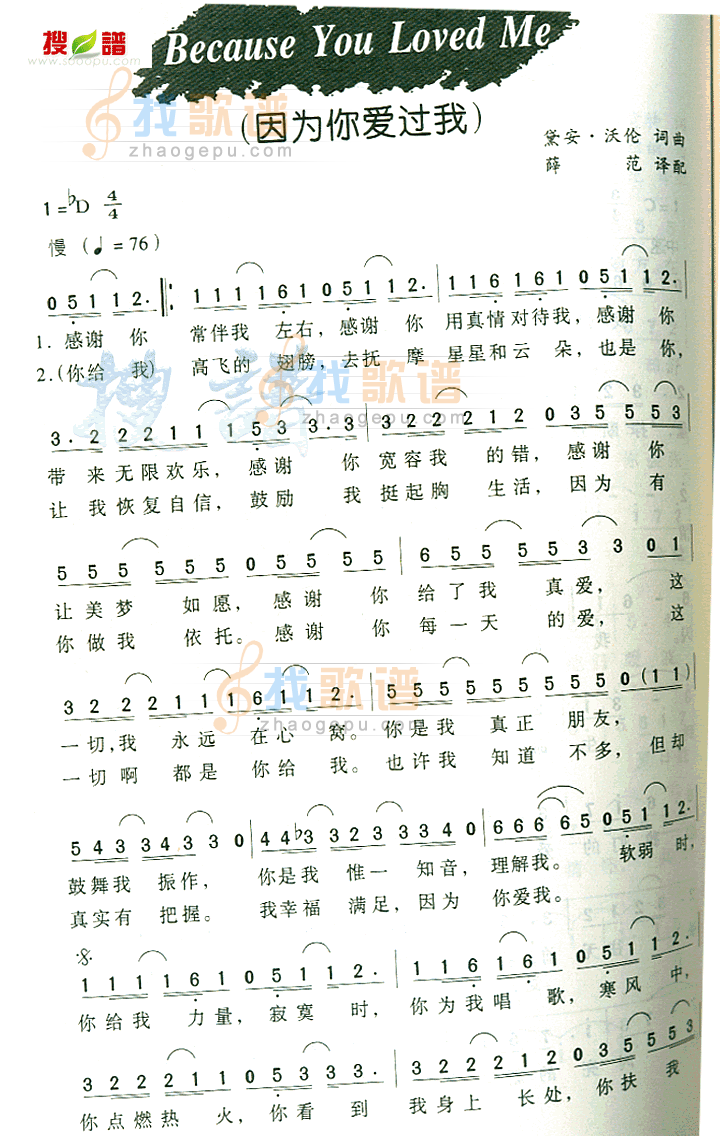 搜谱
www.sooopu.com
Because You Loved Me
找歌谱
zhaogepu.com
(因为你爱过我)
黛安·沃伦 词曲
薛 范 译配
1=♭D 4/4
慢 (♩=76)
0 5 1 1 1 2· ‖: 1 1 1 1 6 1 0 5 1 1 2· | 1 1 6 1 6 1 0 5 1 1 1 2·
1. 感谢 你 常伴我 左右，感谢 你 用真情对待我，感谢 你
2.(你给 我) 高飞的 翅膀，去抚 摩 星星和云 朵，也是 你，
搜谱
找歌谱
zhaogepu.com
3· 2 2 2 2 1 1 1 5 3 3·3 | 3 2 2 2 1 2 0 3 5 5 5 3
带 来无限欢乐，感谢 你 宽容我 的错，感谢 你
让 我恢复自信，鼓励 我 挺起胸 生活，因为 有
5 5 5 5 5 5 0 5 5 5 5 | 6 5 5 5 5 3 3 0 1
让美梦 如愿，感谢 你 给了我 真爱，这
你做我 依托。感谢 你 每一天 的爱，这
找歌谱
zhaogepu.com
3 2 2 2 1 1 1 6 1 1 2· | 5 5 5 5 5 5 5 5 5 5 0 (1 1)
一切，我 永远 在心 窝。你是我 真正 朋友，
一切啊 都是 你给 我。也许我 知道 不多，但却
5 4 3 3 4 3 3 0 | 4 4 ♭3 3 2 3 3 4 0 | 6 6 6 6 5 0 5 1 1 1 2·
鼓舞我 振作， 你是我 惟一 知音，理解我。 软弱 时，
真实有 把握。 我幸福 满足，因为 你爱我。
1 1 1 1 6 1 0 5 1 1 2· | 1 1 6 1 6 1 0 5 1 1 1 2·
你给我 力量，寂寞 时， 你为我唱 歌，寒风 中，
3 2 2 2 1 1 0 5 1 5 3 3 | 3 2 2 2 1 2 0 3 5 5 5 3
你点燃热 火，你看 到 我身上 长处，你扶 我